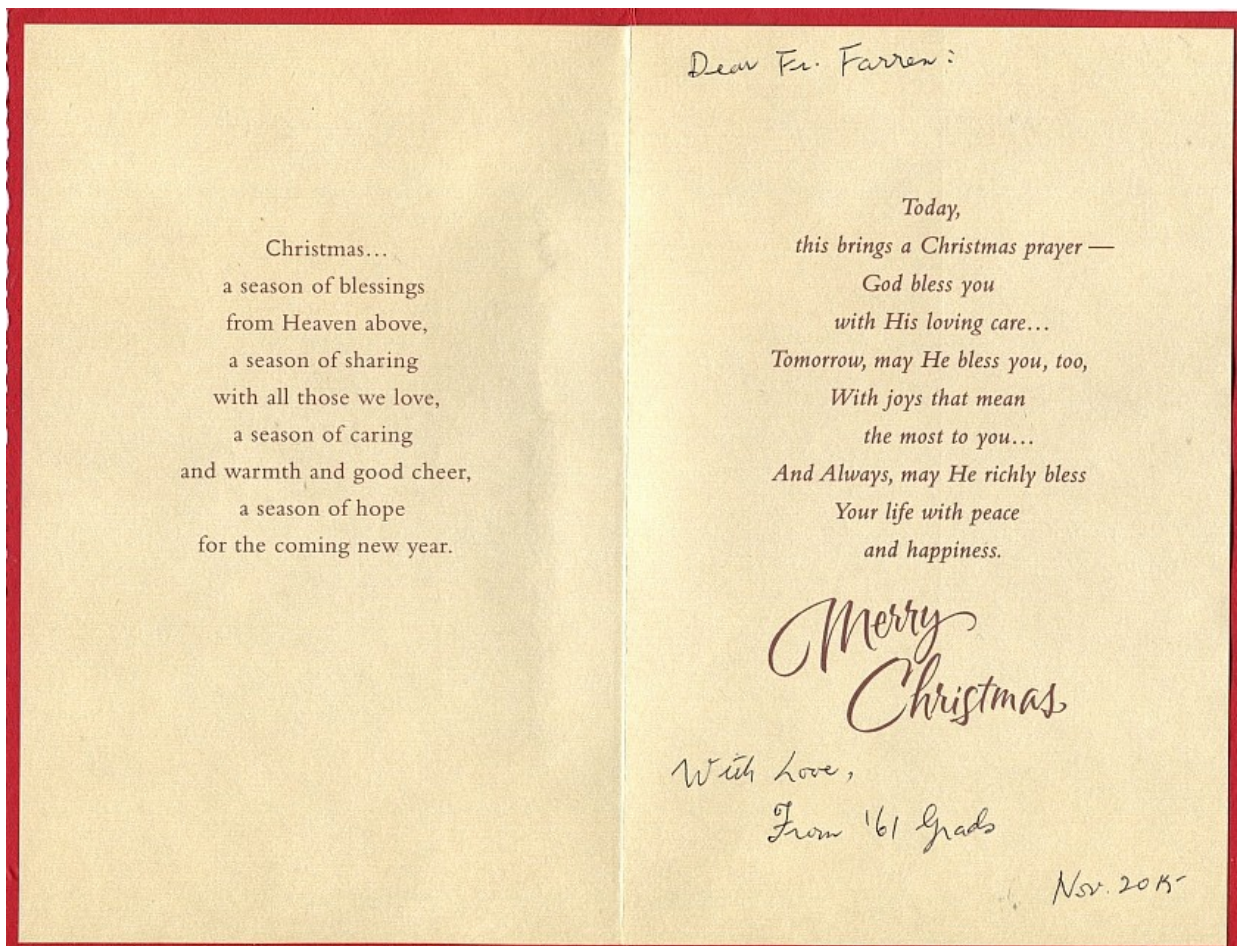 Christmas...
a season of blessings
from Heaven above,
a season of sharing
with all those we love,
a season of caring
and warmth and good cheer,
a season of hope
for the coming new year.
Dear Fr. Farren:
Today,
this brings a Christmas prayer —
God bless you
with His loving care...
Tomorrow, may He bless you, too,
With joys that mean
the most to you...
And Always, may He richly bless
Your life with peace
and happiness.
Merry
Christmas
With Love,
From '61 Grads
Nov. 2015